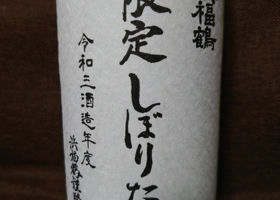 福鶴
限定しぼりた
令和三酒造年度
浜福鶴謹醸